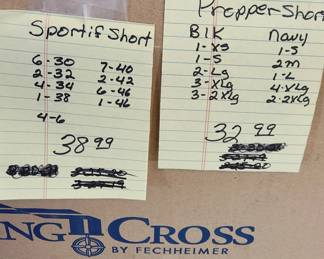 Sportif Short
6-30 7-40
2-32 2-42
4-34 6-46
1-38 1-46
4-6
38 99
Propper Short
Blk Navy
1-XS 1-S
1-S 2m
2-Lg 1-L
3-XLg 4-XLg
3-2XLg 2-2XLg
32 99
NG CROSS
BY FECHHEIMER